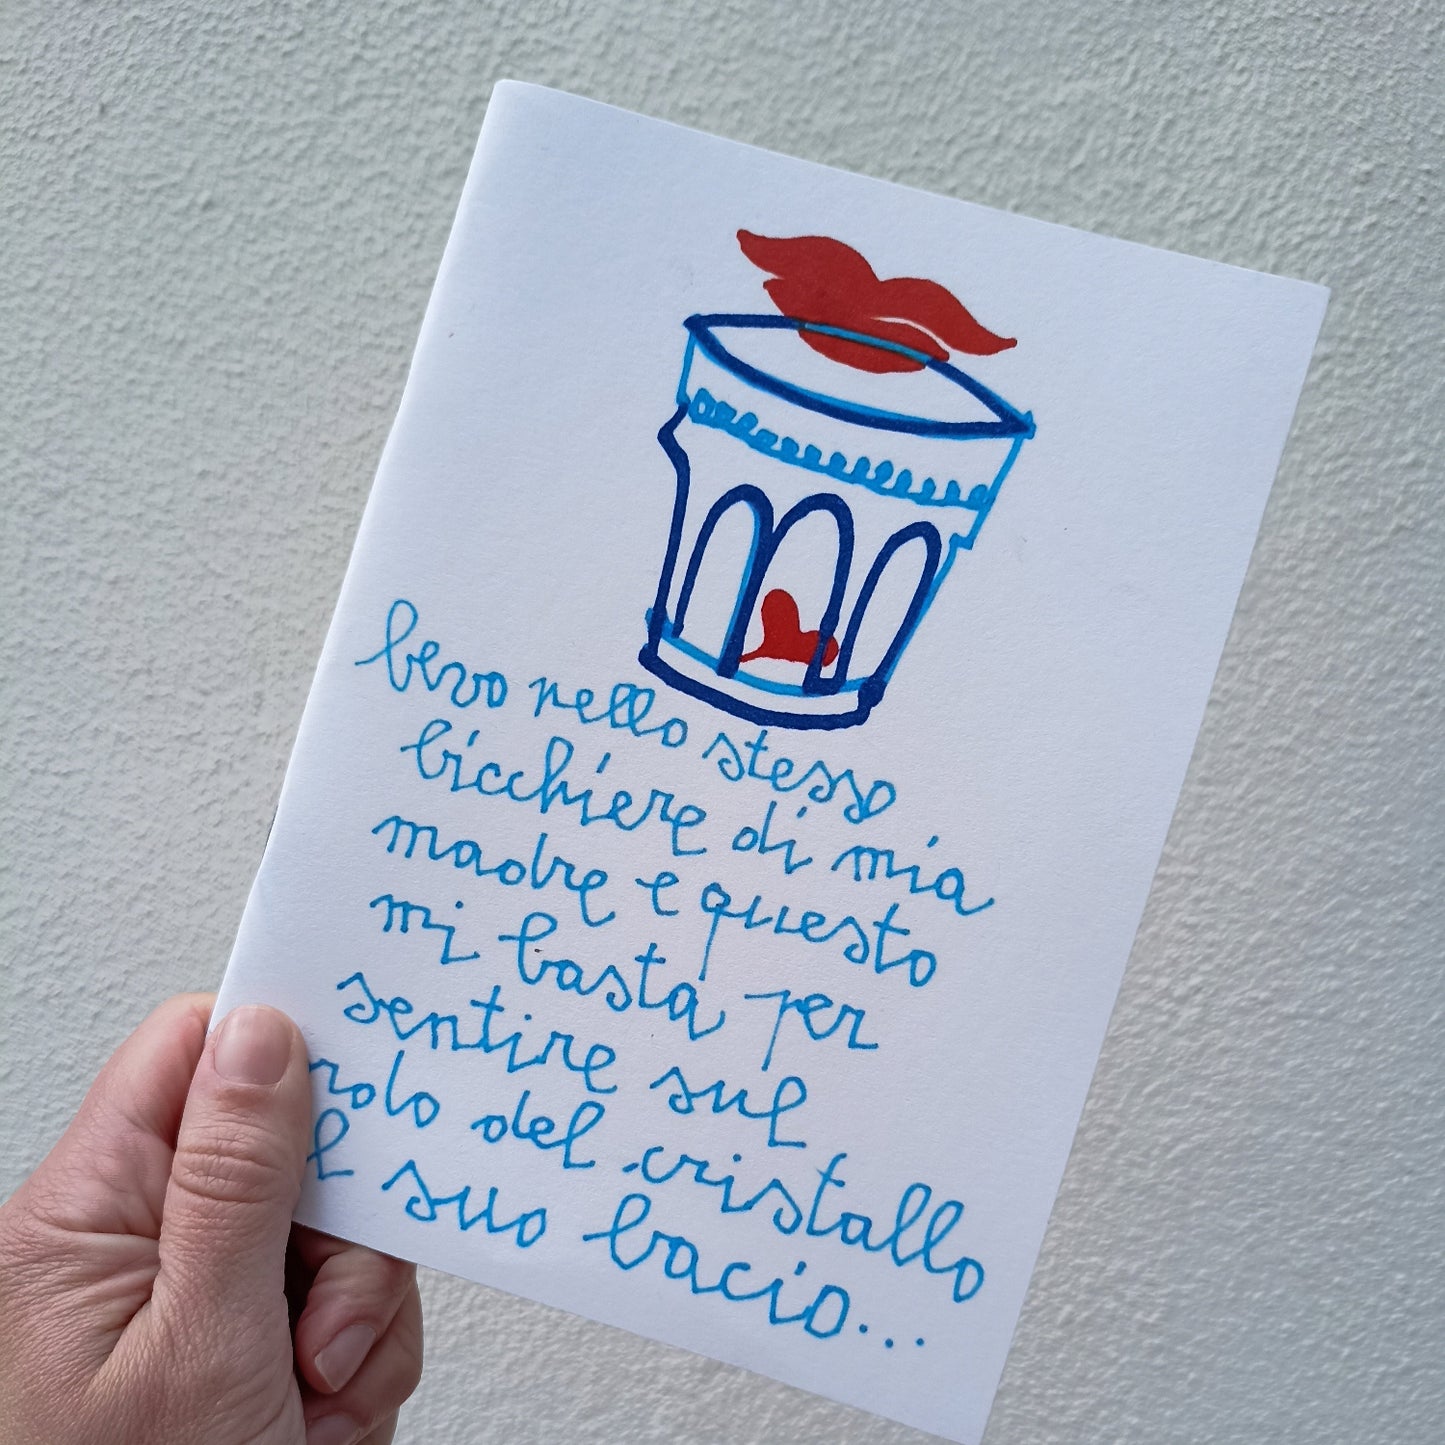 bevo nello stesso
bicchiere di mia
madre e questo
mi basta per
sentire sul
rolo del cristallo
l suo bacio...